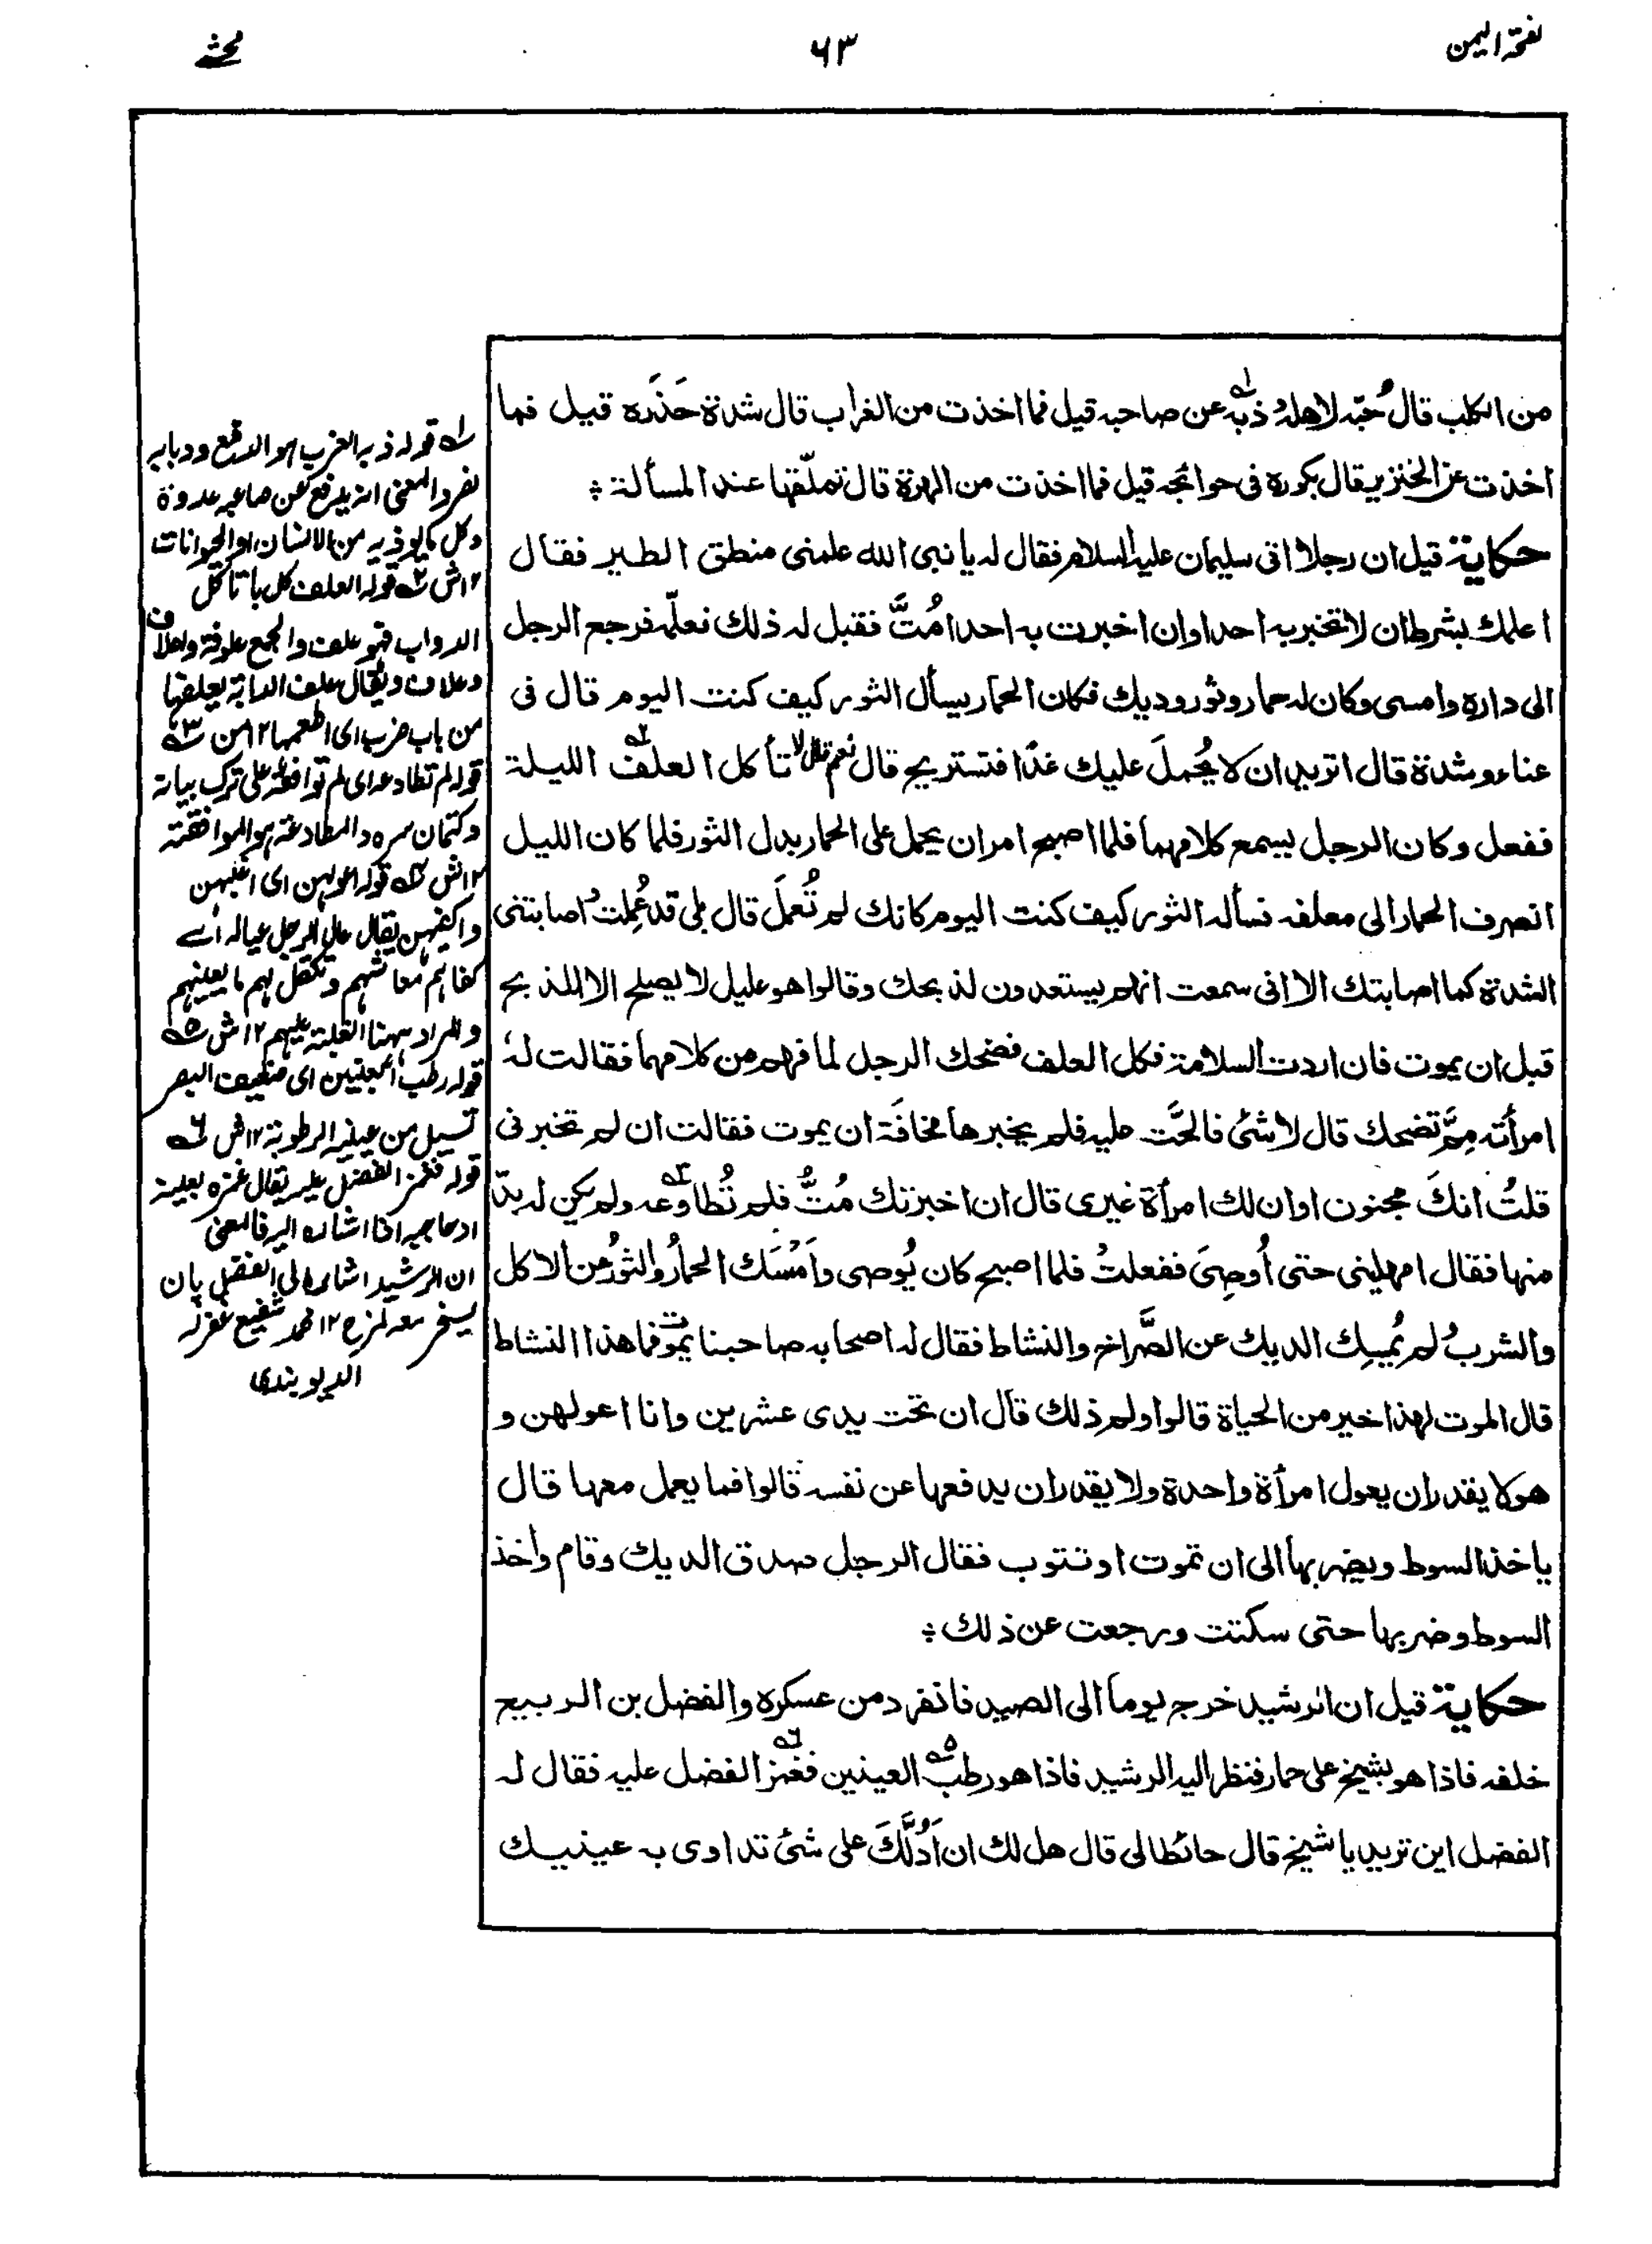 نفحة اليمن
٦٣
محشے
من الكلب قال حُبّه لاهله وذبّه عن صاحبه قيل فما اخذت من الغراب قال شدة حَذَره قيل فما
اخذت عن الخنزير قال بكوره فى حوائجه قيل فما اخذت من الهرة قال تملّقها عند المسألة ؞
حكاية قيل ان رجلا اتى سليمان عليه السلام فقال له يا نبى الله علمنى منطق الطير فقال
اعلمك بشرط ان لا تخبر به احدا وان اخبرت به احدا مُتَّ فقبل له ذلك فعلّمه فرجع الرجل
الى داره وامسى وكان له حمار وثور وديك فكان الحمار يسأل الثور كيف كنت اليوم قال فى
عناء وشدة قال اتريد ان لا يُحملَ عليك غدًا فتستريح قال نعم قال لا تأكل العلف الليلة
ففعل وكان الرجل يسمع كلامهما فلما اصبح امر ان يحمل على الحمار بدل الثور فلما كان الليل
انصرف الحمار الى معلفه فسأله الثور كيف كنت اليوم كانك لم تُعمَل قال بلى قد عُمِلتُ اصابتنى
الشدة كما اصابتك الا انى سمعت انهم يستعدون لذبحك وقالوا هو عليل لا يصلح الا للذبح
قبل ان يموت فان اردت السلامة فكل العلف فضحك الرجل لما فهم من كلامهما فقالت له
امرأته مِمَّ تضحك قال لا شئ فالحَّت عليه فلم يخبرها مخافة ان يموت فقالت ان لم تخبرنى
قلتُ انكَ مجنون او ان لك امرأة غيرى قال ان اخبرتك مُتُّ فلم تُطاوعه ولم يكن له بدّ
منها فقال امهلينى حتى أُوصِىَ ففعلتْ فلما اصبح كان يُوصى وأمْسَك الحمارُ والثورُ عن الاكل
والشربُ لم يُمسِك الديك عن الصَّراخ والنشاط فقال له اصحابه صاحبنا يموت فما هذا النشاط
قال الموت لهذا خير من الحياة قالوا ولم ذلك قال ان تحت يدى عشرين وانا اعولهن و
هو لا يقدر ان يعول امرأة واحدة ولا يقدر ان يدفعها عن نفسه قالوا فما يعمل معها قال
ياخذ السوط ويضربها الى ان تموت او تتوب فقال الرجل صدق الديك وقام وأخذ
السوط وضربها حتى سكتت ورجعت عن ذلك ؞
حكاية قيل ان الرشيد خرج يوما الى الصيد فانفرد من عسكره والفضل بن الربيع
خلفه فاذا هو بشيخ على حمار فنظر اليه الرشيد فاذا هو رطب العينين فغمز الفضل عليه فقال له
الفضل اين تريد يا شيخ قال حائطا لى قال هل لك ان أَدُلَّكَ على شئ تداوى به عينيك
١ه قوله ذبه العزب هو الدفع ودبابه
نفر والمعنى انه يدفع عن صاحبه عدوه
وكل ما يوذيه من الانسان او الحيوانات
١٢ش ٢ه قوله العلف كل ما تأكل
الدواب فهو علف والجمع علوفة واعلاف
وعلاف ويقال علف الدابة يعلفها
من باب ضرب اى اطعمها ١٢ من ٣ه
قوله لم تطاوعه اى لم توافقه على ترك بيانه
وكتمان سره والمطاوعة هو الموافقة
١٢ش ٤ه قوله اعولهن اى اغلبهن
واكفيهن يقال عال الرجل عياله اے
كفاهم معاشهم وتكفل بهم ما يعينهم
والمراد ههنا الغلبة عليهم ١٢ش ٥ه
قوله رطب العينين اى ضعيف البصر
تسيل من عينيه الرطوبة ١٢ش ٦ه
قوله فغمز الفضل عليه يقال غمزه بعينه
او حاجبه اذا اشار اليه فالمعنى
ان الرشيد اشار الى الفضل بان
يسخر معه لمزح ١٢ محمد شفيع غفر له
الديوبندى